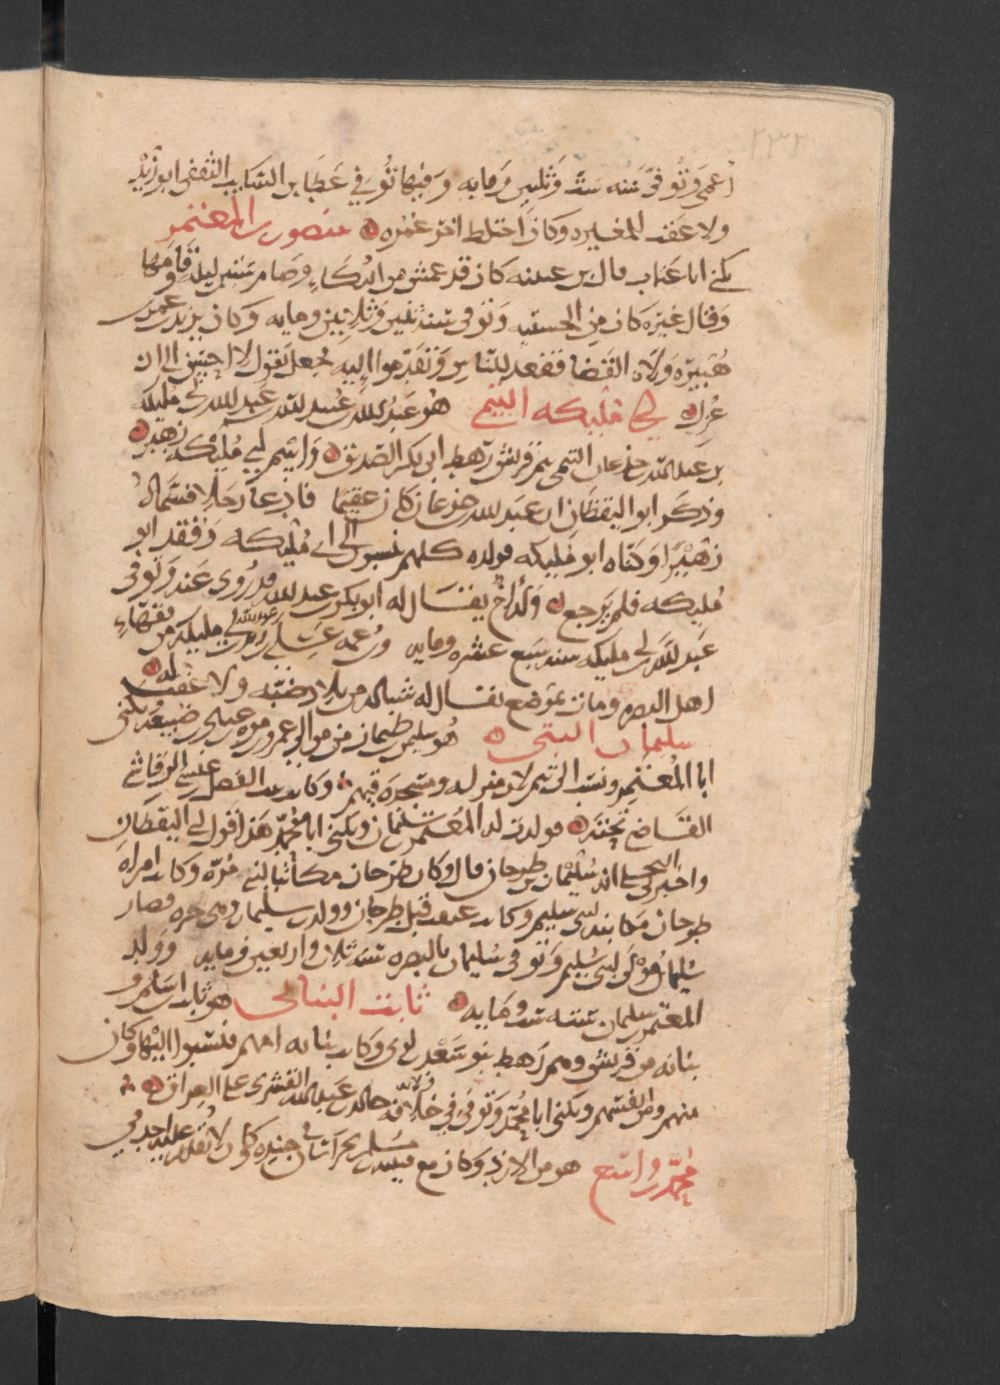 ٢٣٢
أعمى وتوفى سنه ست وثلثين ومايه وفيها توفي عطا بن السايب الثقفى ابو زيد
ولا عقب للمغيره وكان اختلط اخر عمره منصور بن المعتمر
يكنى ابا عتاب قال بن عيينه كان قد عمش من البكاء وصام ستين سنه وقامها
وقال غيره كان من الخشبيه وتوفى سنه ثنتين وثلاثين ومايه وكان يزيد بن عمر بن
هبيره ولاه القضا فقعد للناس وتقدموا اليه فجعل يقول لا احسن الى ان
عزل بن ابى مليكه التيمى هو عبد الله بن عبيد الله بن عبد الله بن ابى مليكه
بن عبد الله بن جذعان التيمى من قريش رهط ابى بكر الصديق واسم ابي مليكه زهير
وذكر ابو اليقظان ان عبد الله بن جذعان كان عقيما فادعا رجلا فسماه
زهيرا وكناه ابو مليكه فولده كلهم نسبوا الى ابى مليكه وفقد ابو
مليكه فلم يرجع وله اخ يقال له ابو بكر بن عبد الله قد روى عنه وتوفى
عبد الله بن ابى مليكه سنه سبع عشره ومايه وعمه على بن زيد بن عبد الله بن ابى مليكه من فقهاء
اهل البصره ومات بموضع يقال له سيالة من بلاد ضبه ولا عقب له
سليمان التيمى هو سليمن بن طهمان من موالي عمرو بن مره بن عباد بن ضبيعه يكنى
ابا المعتمر ونسب الى تيم لان منزله ومسجده فيهم وكانت بنت الفضل بن عيسى الرقاشى
القاضي تحته فولدت له المعتمر بن سليمان ويكنى ابا محمد هذا قول ابى اليقظان
واخبرنى البجلى انه سليمان بن طرخان قال وكان طرخان مكاتبا لبنى مره وكانت امراه
طرخان مكاتبه لبنى سليم وكانت عتقت قبل طرخان وولدت سليمان وهى حره فصار
سليمان مولى لبنى سليم وتوفى سليمان بالبصره سنه ثلاث واربعين ومايه وولد
المعتمر بن سليمان سنه ست ومايه ثابت البنانى هو ثابت بن اسلم و
بنانه من قريش وهم رهط بنو سعد بن لوى وكانت بنانه امهم فنسبوا اليها وكان
منهم من انفسهم ويكنى ابا محمد وتوفي في خلافه خالد بن عبد الله القسرى على العراق
محمد بن واسع هو من الازد وكان مع قتيبه بن مسلم بخراسان في جنده كان لا يقدم عليه احد فى